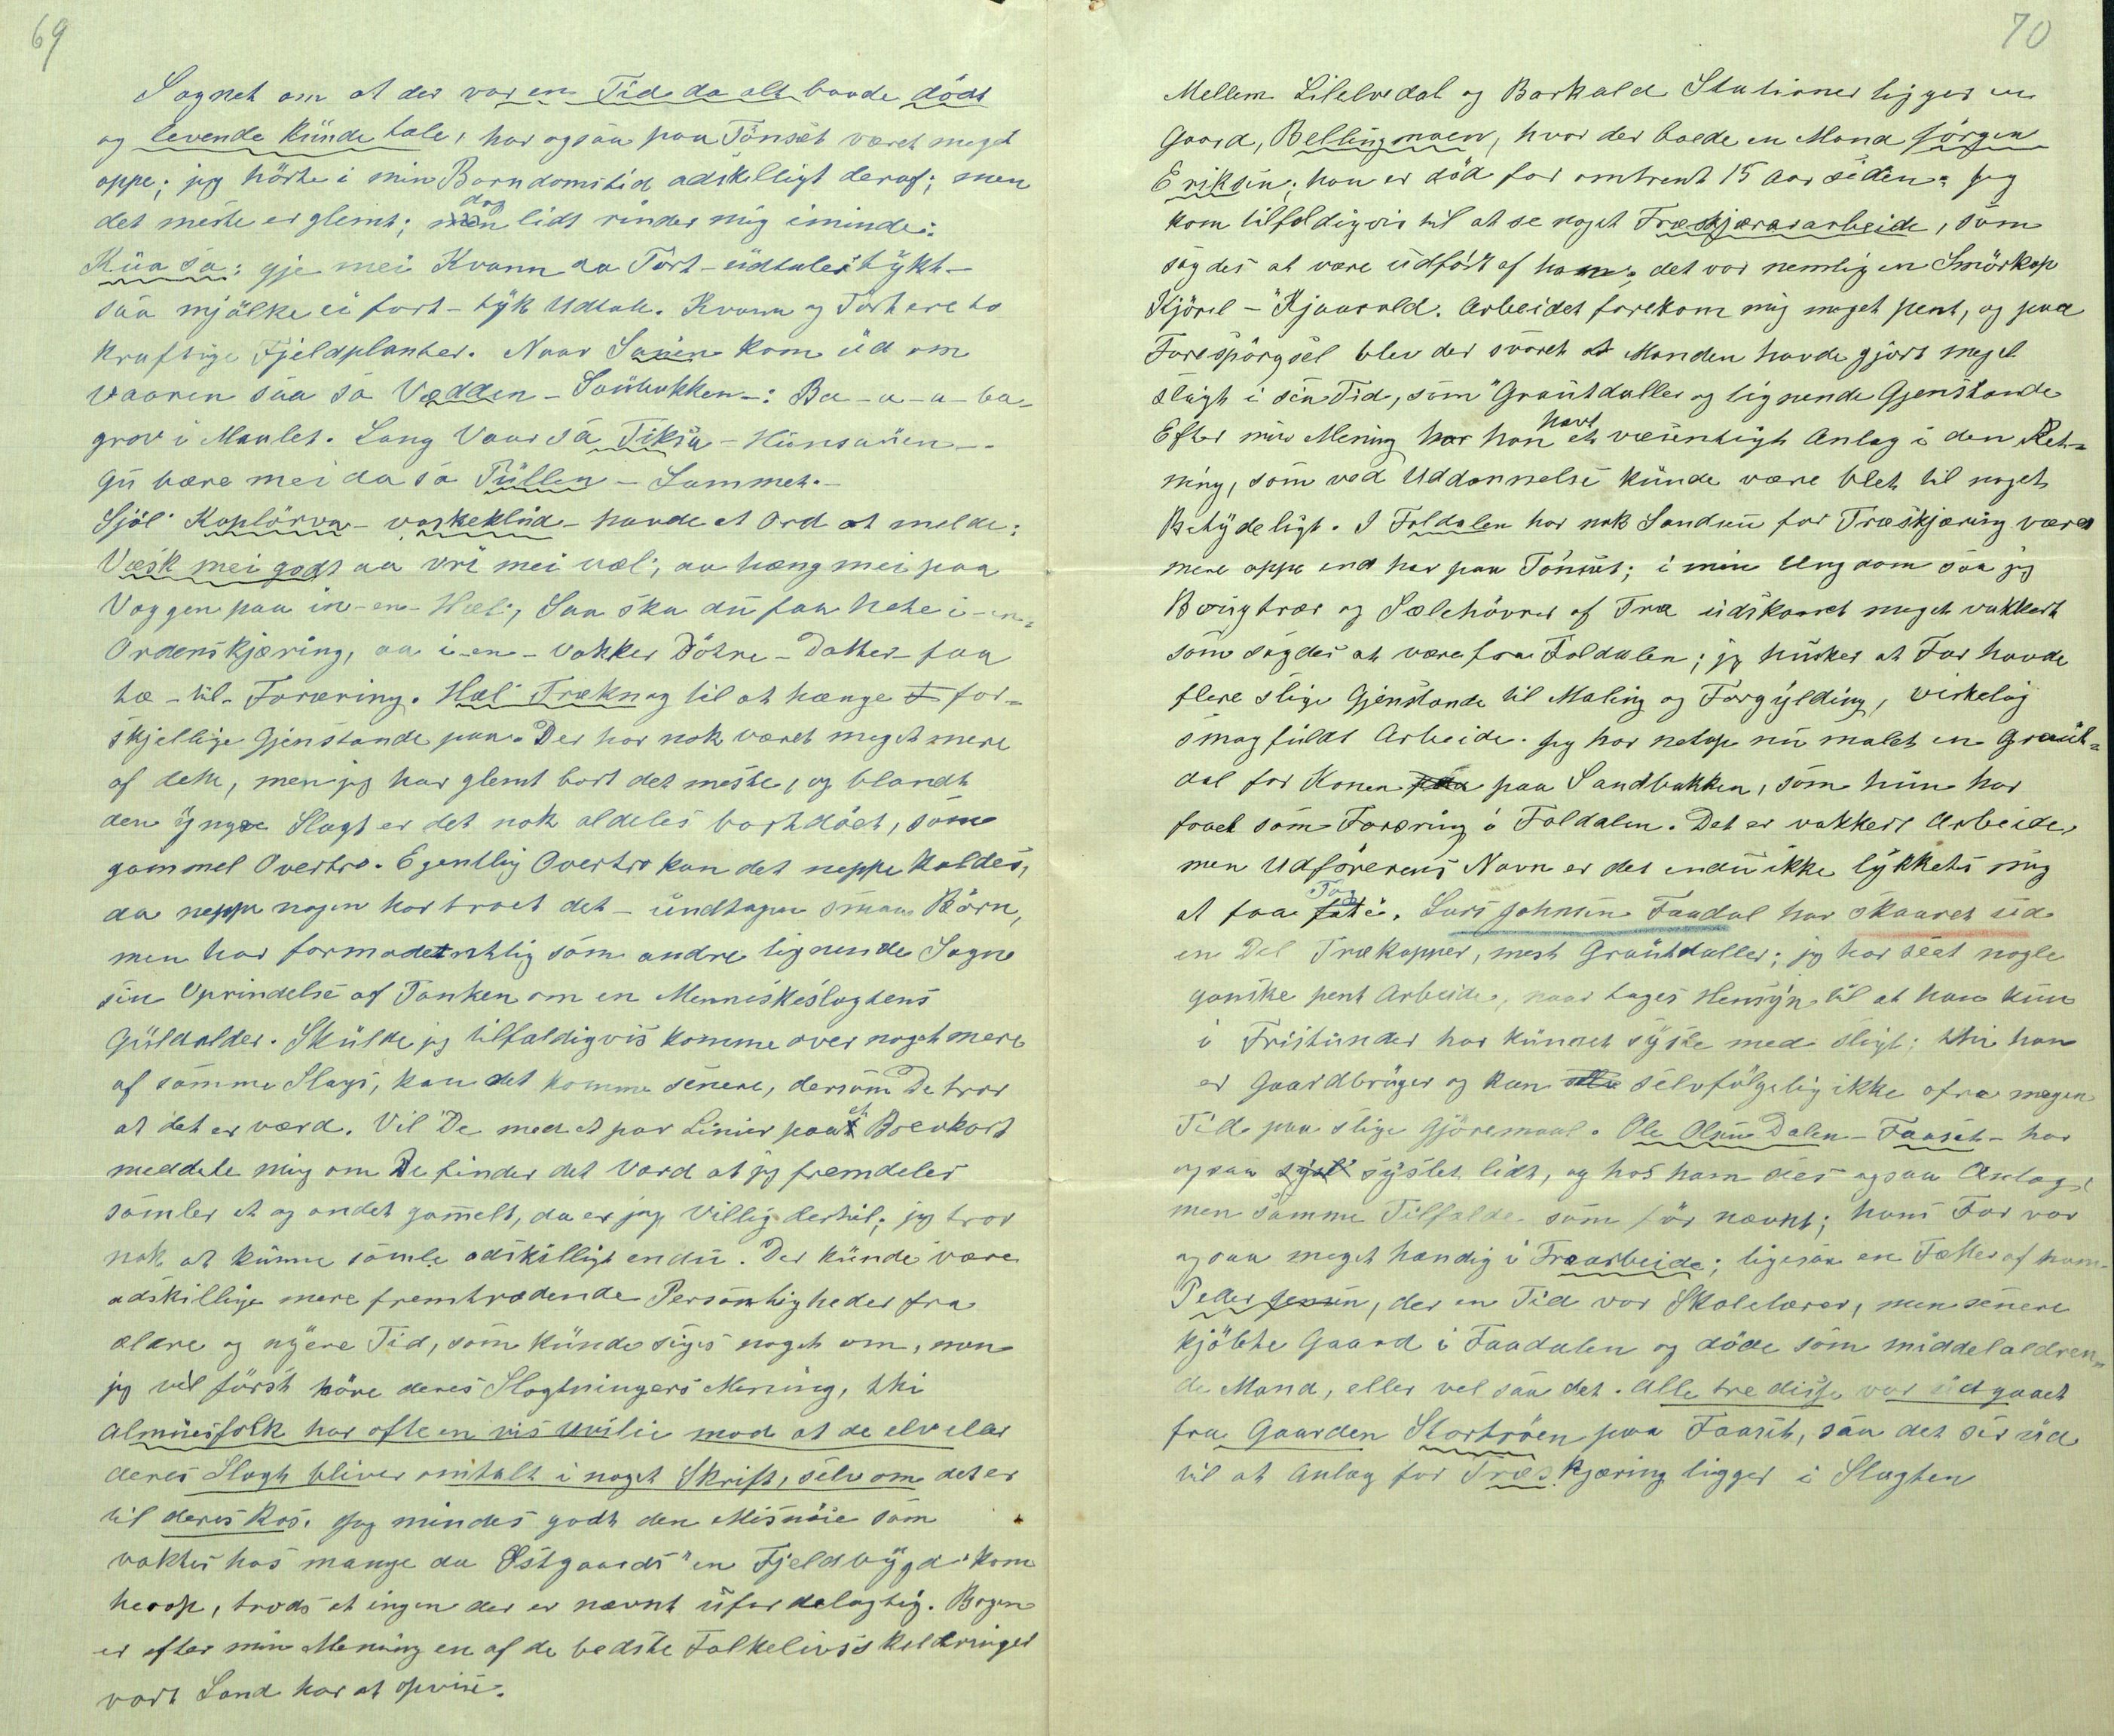 69
Sagnet om at der var en Tid da alt baade dödt
og levende kunde tale, har ogsaa paa Tönset været meget
oppe; jeg hörte i min Barndomstid adskilligt deraf; men
det meste er glemt; dog lidt rinder mig iminde:
Kua sa: gje mei Kvann aa Tört - udtales tykt -
saa mjälke ei fort - tyk Udtale. Kvann og Tört ere to
kraftige Fjeldplanter. Naar Sauen kom ud om
vaaren saa sa Vædden - Saubukken -: Ba - a - a - ba -
grov i Maalet. Lang Vaar sa Tiksa - Hunsauen -.
Gu bære mei da sa Tullen - Lammet. -
Sjöl Koplörva - vaskeklud - havde et Ord at melde:
Vask mei godt aa vri mei væl; aa hæng mei paa
Væggen paa in - en - Hæl; Saa ska du faa hete i - en -
Ordenskjæring, aa i - en - vakker Dötre - Datter - faa
ta - til - Foræring. Hæl Træknag til at hænge for-
skjellige Gjenstande paa. Der har nok været meget mere
af dette, men jeg har glemt bort det meste, og blandt
den yngre Slægt er det nok aldeles bortdöet, som
gammel Overtro. Egentlig Overtro kan det neppe kaldes,
da neppe nogen har troet det - undtagen smaa Börn,
men har formodentlig som andre lignende Sagn
sin Oprindelse af Tanken om en Menneskeslægtens
Guldalder. Skulde jeg tilfældigvis komme over noget mere
af samme Slags, kan det komme senere, dersom De tror
at det er værd. Vil De med et par Linier paa et Brevkort
meddele mig om De finder det Værd at jeg fremdeles
samler et og andet gamelt, da er jeg Villig dertil; jeg tror
nok at kunne samle adskilligt endu. Der kunde være
adskillige mere fremtrædende Personligheder fra
ældre og nyere Tid, som kunde siges noget om, men
jeg vil först höre deres Slægtningers Mening, thi
Almuesfolk har ofte en vis Uvilie mod at de elvelær
deres Slægt bliver omtalt i noget Skrift, selv om det er
til deres Ros. Jeg mindes godt den Misnöie som
vaktes hos mange da Östgaards "en Fjeldbygd" kom
herop, trods at ingen der er nævnt ufordelagtig. Bogen
er efter min Mening en af de bedste Folkelivsskildringer
vort Land har at opvise.
70
Mellem Lilelvedal og Barkald Stationer ligger en
Gaard, Bellingmoen, hvor der boede en Mand Jörgen
Eriksen; han er död for omtrent 15 Aar siden. Jeg
kom tilfældigvis til at se noget Træskjærararbeide, som
sagdes at være udfört af ham; det var nemlig en Smörkop
Kjörel - "Kjaarald. Arbeidet forekom mig meget pent, og paa
Forespörgsel blev der svaret at Manden havde gjort meget
sligt i sin Tid, som "Grautdaller og lignende Gjenstande
Efter min Mening har han havt et væsentligt Anlæg i den Ret-
ning, som ved Uddannelse kunde være blet til noget
Betydeligt. I Foldalen har nok Sandsen for Træskjæring været
mere oppe end her paa Tönset; i min Ungdom saa jeg
Bringtrær og Sælehövrer af Træ udskaaret meget vakkert
som sagdes at være fra Foldalen; jeg husker at Far havde
flere slige Gjenstande til Maling og Forgylding, virkelig
smagfuldt Arbeide. Jeg har netop nu malet en Graut-
dal for Konen paa Sandbakken, som hun har
faaet som Foræring i Foldalen. Det er vakkert Arbeide,
men Udförerens Navn er det endu ikke lykkets mig
at faa Tag i. Lars Johnsen Faadal har skaaret ud
en Del Trækopper, mest Grautdaller; jeg har seet nogle
ganske pent Arbeide, naar tages Hensyn til at han kun
i Fristunder har kunnet sysle med sligt; thi han
er Gaardbruger og kan selvfölgelig ikke ofre megen
Tid paa slige Gjöremaal. Ole Olsen Dalen - Faaset - har
ogsaa syslet lidt, og hos ham sees ogsaa Anlæg,
men samme Tilfælde som för nævnt; hans Far var
ogsaa meget hændig i Træarbeide; ligesaa en Fætter af ham -
Peder Jensen, der en Tid var Skolelærer, men senere
kjöbte Gaard i Faadalen og döde som middelaldren-
de Mand, eller vel saa det. Alle tre disse var udgaaet
fra Gaarden Stortröen paa Faaset, saa det ser ud
til at Anlæg for Træskjæring ligger i Slægten